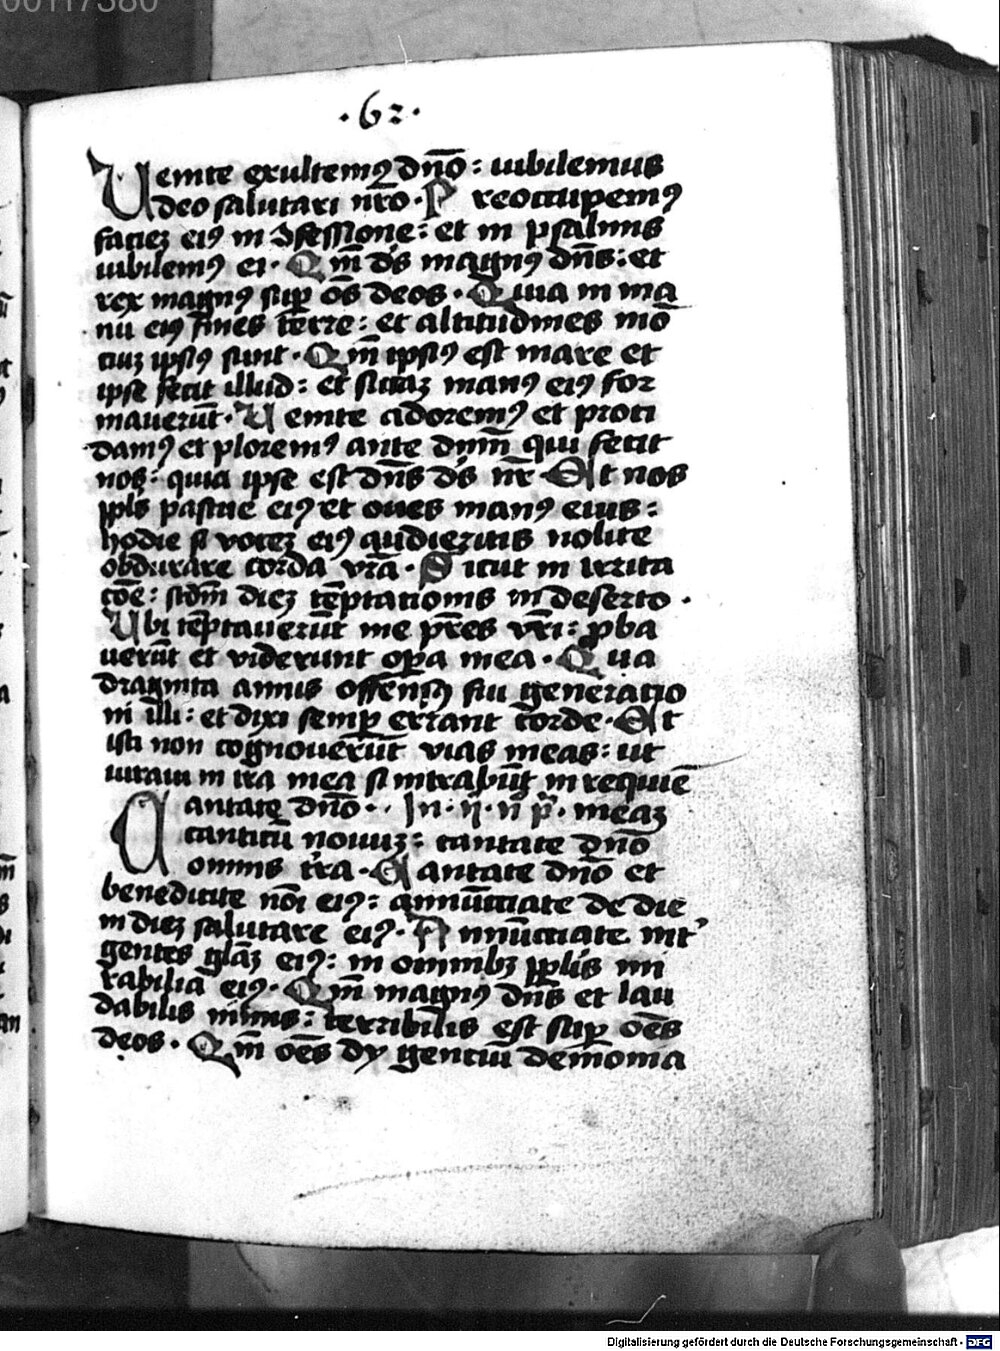 00117380
·62·
Uenite exultemꝰ dn̄o : iubilemus
deo salutari nr̄o · Preoccupemꝰ
facieʒ eiꝰ in ꝯfessione : et in psalmis
iubilemꝰ ei · Qm̄ ds̄ magnꝰ dn̄s : et
rex magnꝰ suꝑ os̄ deos · Quia in ma
nu eiꝰ fines terre : et altitudines mō
ciuʒ ipsiꝰ sunt · Qm̄ ipsiꝰ est mare et
ipse fecit illud : et siccaʒ manꝰ eiꝰ for
mauerūt · Uenite adoremꝰ et proci
damꝰ et ploremꝰ ante dnm̄ qui fecit
nos : quia ipse est dn̄s ds̄ nr̄ Et nos
ppls pascue eiꝰ et oues manꝰ eius :
hodie si voceʒ eiꝰ audieritis nolite
obdurare corda vr̄a · Sicut in irrita
cōe : scd̄m dieʒ tēptationis in deserto ·
Ubi tēptauerūt me pr̄es vr̄i : ꝓba
uerūt et viderunt oꝑa mea · Qua
draginta annis offensꝰ fui generatio
ni illi : et dixi semꝑ errant corde · Et
isti non cognouerūt vias meas : ut
iuraui in ira mea si intrabūt in requiē
Cantate dn̄o · · In · ij · n̄ p̄ · meaʒ
canticū nouuʒ : cantate dn̄o
omnis tr̄a · Cantate dn̄o et
benedicite nōi eiꝰ : annūctiate de die
in dieʒ salutare eiꝰ · Annūctiate int'
gentes glāʒ eiꝰ : in omnibʒ ppl̄is mi
rabilia eiꝰ · Qm̄ magnꝰ dn̄s et lau
dabilis nimis : terribilis est suꝑ oēs
deos · Qm̄ oēs dy gentiū demonia
Digitalisierung gefördert durch die Deutsche Forschungsgemeinschaft - DFG